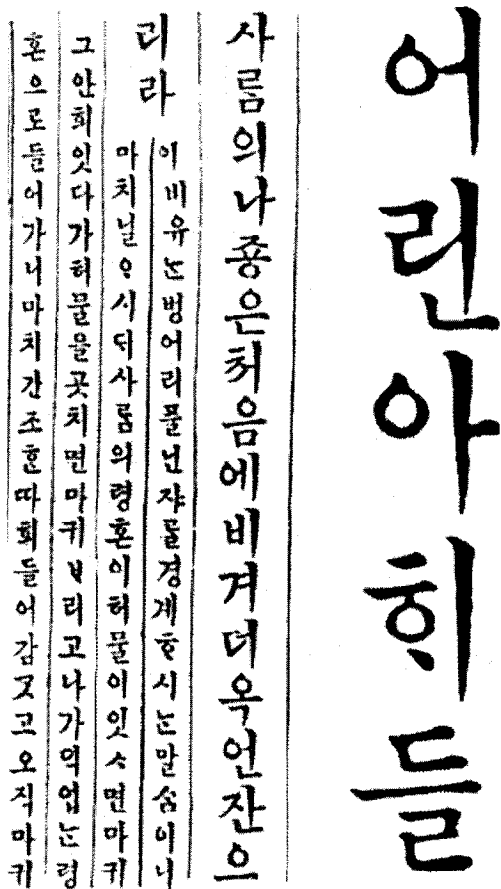 어린아ᄒᆡ들
사ᄅᆞᆷ의나죵은처음에비겨더욱언잔으
리라
이비유ᄂᆞᆫ벙어리물닌쟈ᄅᆞᆯ경계ᄒᆞ시ᄂᆞᆫ말ᄉᆞᆷ이니
마치닐ᄋᆞ시ᄃᆡ사ᄅᆞᆷ의령혼이허물이잇ᄉᆞ면마귀
그안희잇다가허물을곳치면마귀ᄇᆞ리고나가의업ᄂᆞᆫ령
혼으로들어가니마치간조ᄒᆞᆫ따희들어감ᄀᆞᆺ고오직마귀